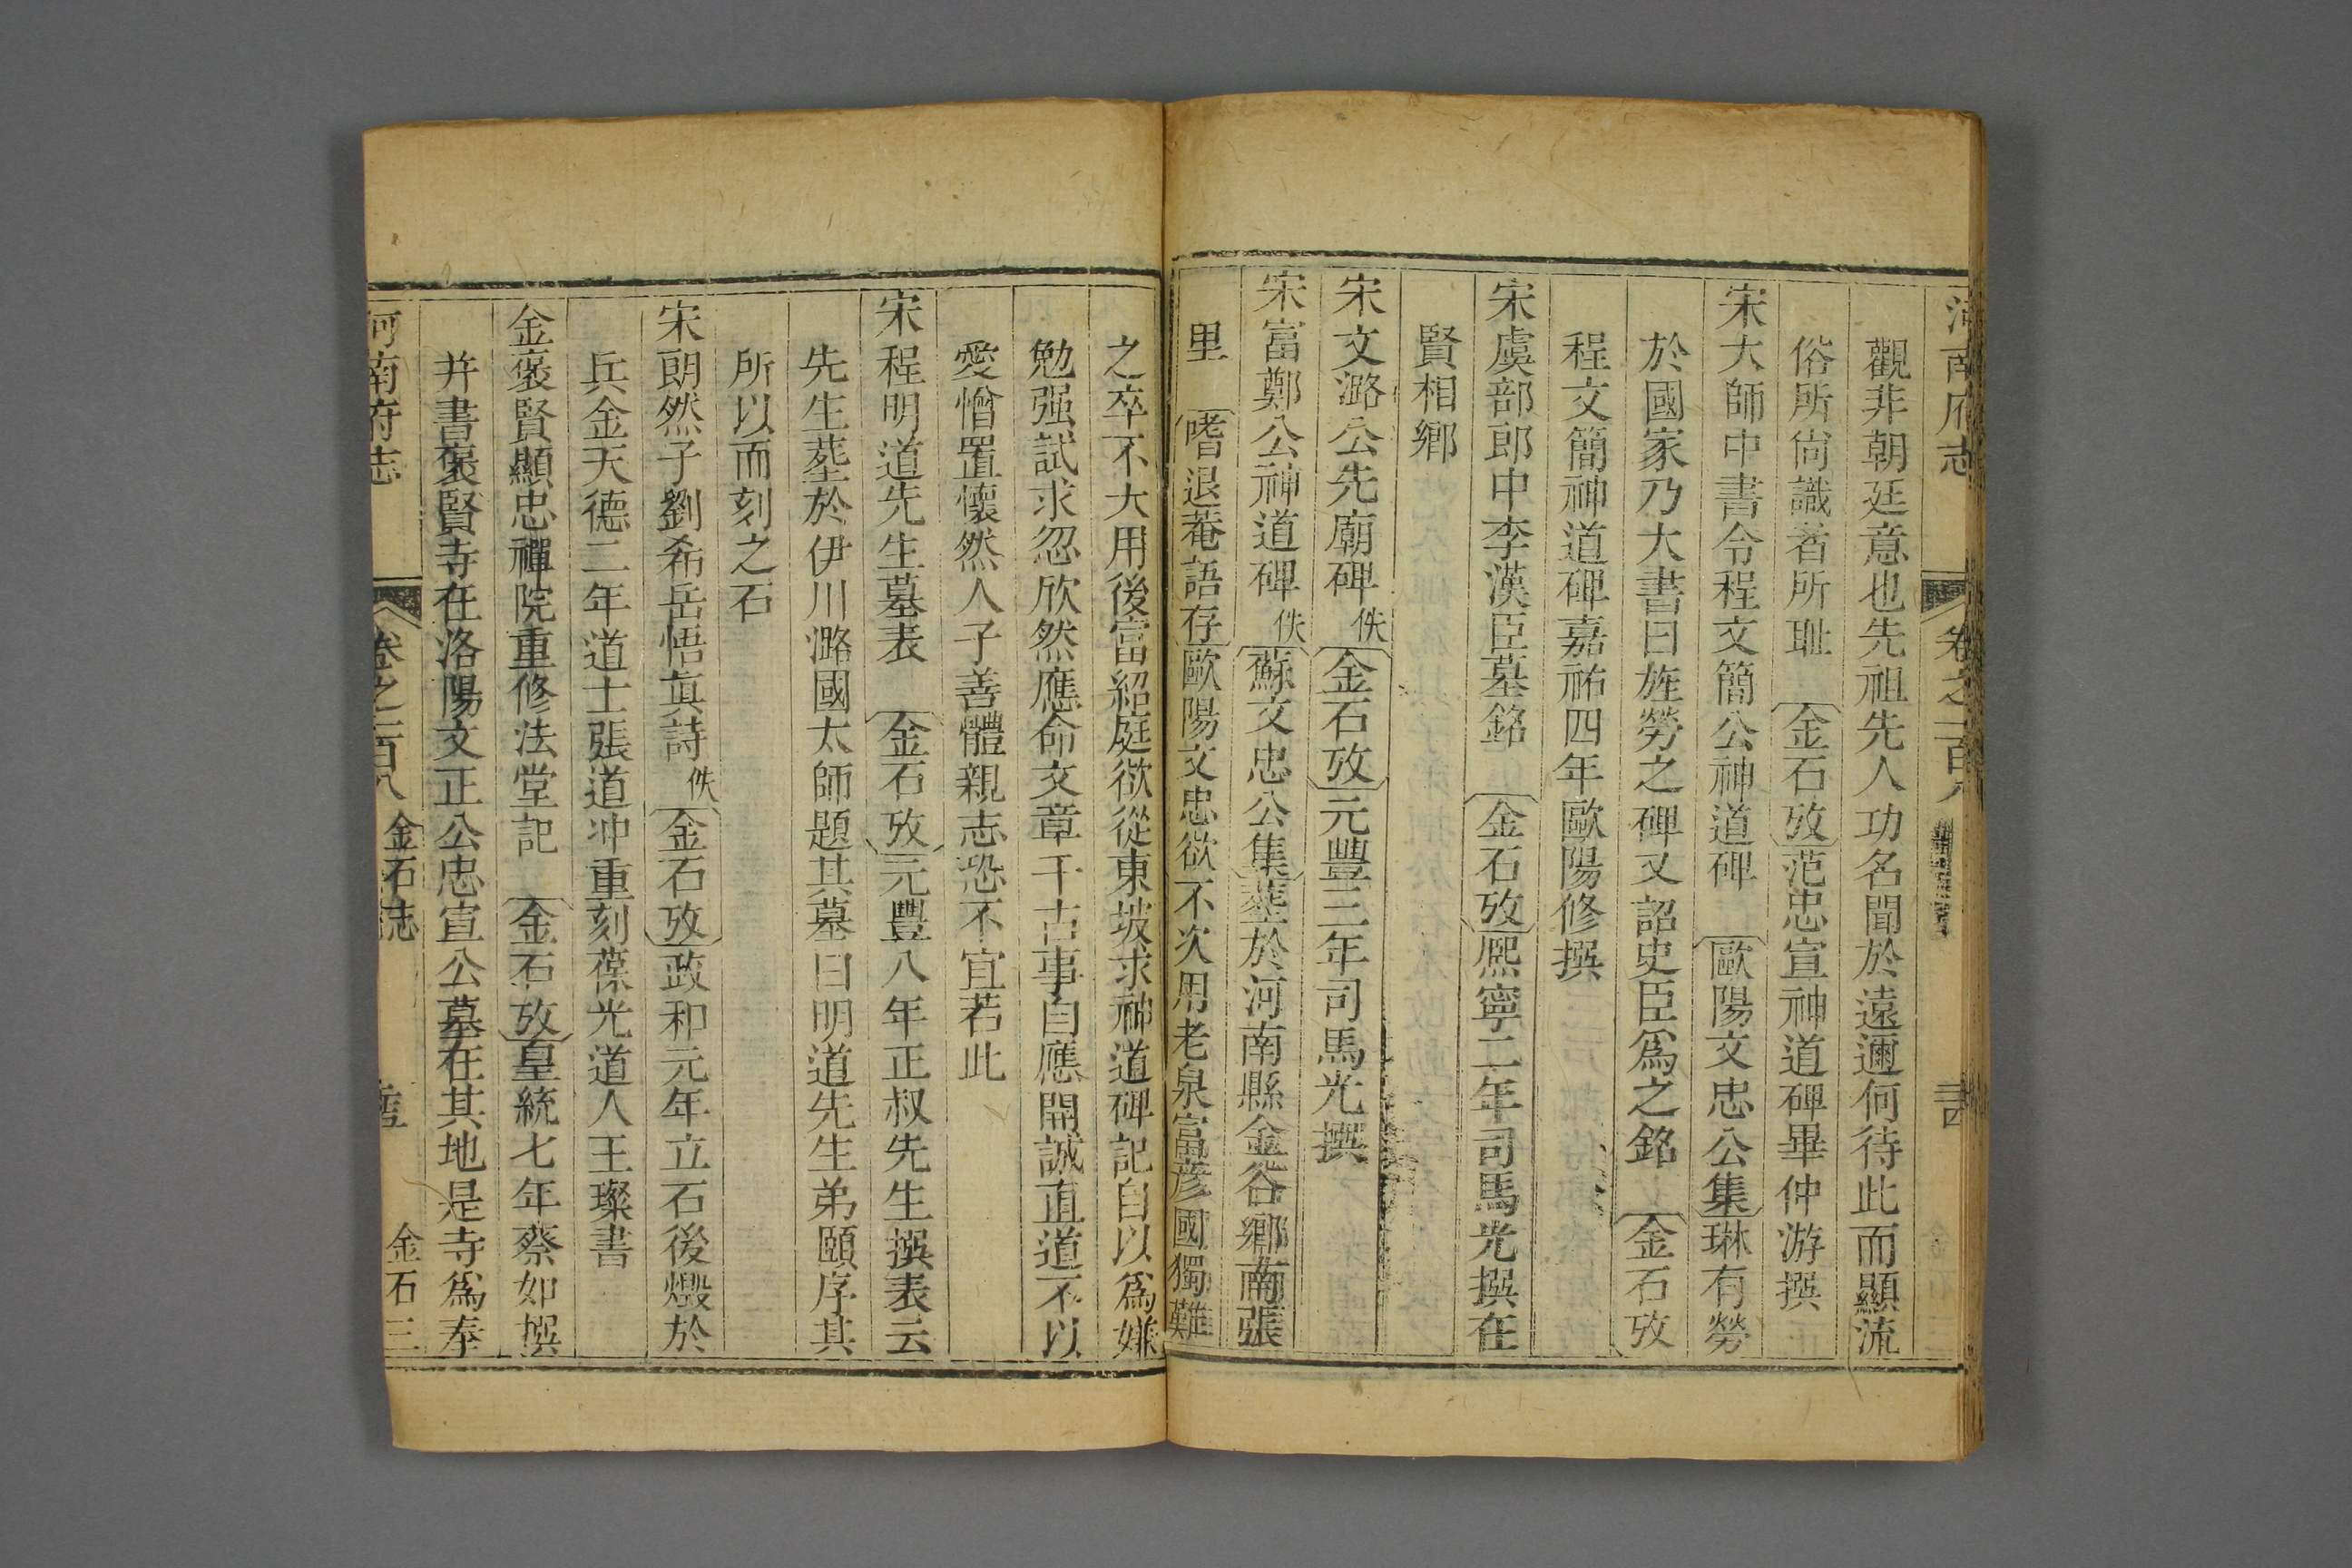 河南府志 卷之一百八
觀非朝廷意也先祖先人功名聞於遠邇何待此而顯流
俗所尙識者所耻 金石攷范忠宣神道碑畢仲游撰
宋大師中書令程文簡公神道碑 歐陽文忠公集琳有勞
於國家乃大書曰旌勞之碑又詔史臣爲之銘 金石攷
程文簡神道碑嘉祐四年歐陽修撰
宋虞部郎中李漢臣墓銘 金石攷熙寧二年司馬光撰在
賢相鄉
宋文潞公先廟碑佚金石攷元豐三年司馬光撰
宋富鄭公神道碑佚蘇文忠公集塟於河南縣金谷鄉南張
里 嗜退菴語存歐陽文忠欲不次用老泉富彥國獨難
之卒不大用後富紹庭欲從東坡求神道碑記自以爲嫌
勉强試求忽欣然應命文章千古事自應開誠直道不以
愛憎置懷然人子善體親志恐不宜若此
宋程明道先生墓表 金石攷元豐八年正叔先生撰表云
先生塟於伊川潞國太師題其墓曰明道先生弟頤序其
所以而刻之石
宋朗然子劉希岳悟眞詩佚金石攷政和元年立石後燬於
兵金天德二年道士張道冲重刻葆光道人王璨書
金褒賢顯忠禪院重修法堂記 金石攷皇統七年蔡如撰
并書褒賢寺在洛陽文正公忠宣公墓在其地是寺爲奉
河南府志 卷之一百八 金石志 金石三